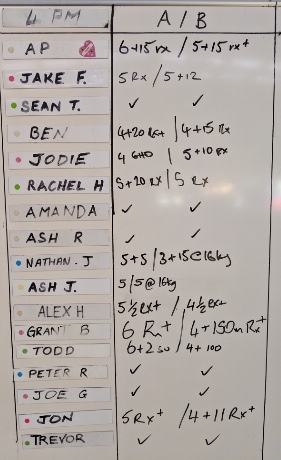 4 PM A / B
AP 6+15 rx / 5+15 rx+
JAKE F. 5 Rx / 5+12
SEAN T. ✓ ✓
BEN 4+20 Rx+ | 4+15 Rx
JODIE 4 | 5+10 rx
RACHEL H 5+20 RX | 5 Rx
AMANDA ✓ ✓
ASH R ✓ ✓
NATHAN. J 5+5 / 3+15@16kg
ASH J. 5/5@16kg
ALEX H 5½Rx+ / 4½Rx+
GRANT B 6 Rx+ / 4+150m Rx+
TODD 6+250 / 4+100
PETER R ✓ ✓
JOE G ✓ ✓
JON 5Rx+ / 4+11Rx+
TREVOR ✓ ✓